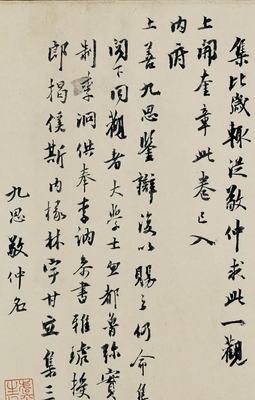 集比歲輒從敬仲求此一觀
上開奎章此卷已入
內府
上善九思鑒辯復以賜之何命集
閣下同觀者大學士忽都魯弥實
制李泂供奉李訥参書雅琥授
郎揭傒斯内掾林宇甘立集三
九思敬仲名